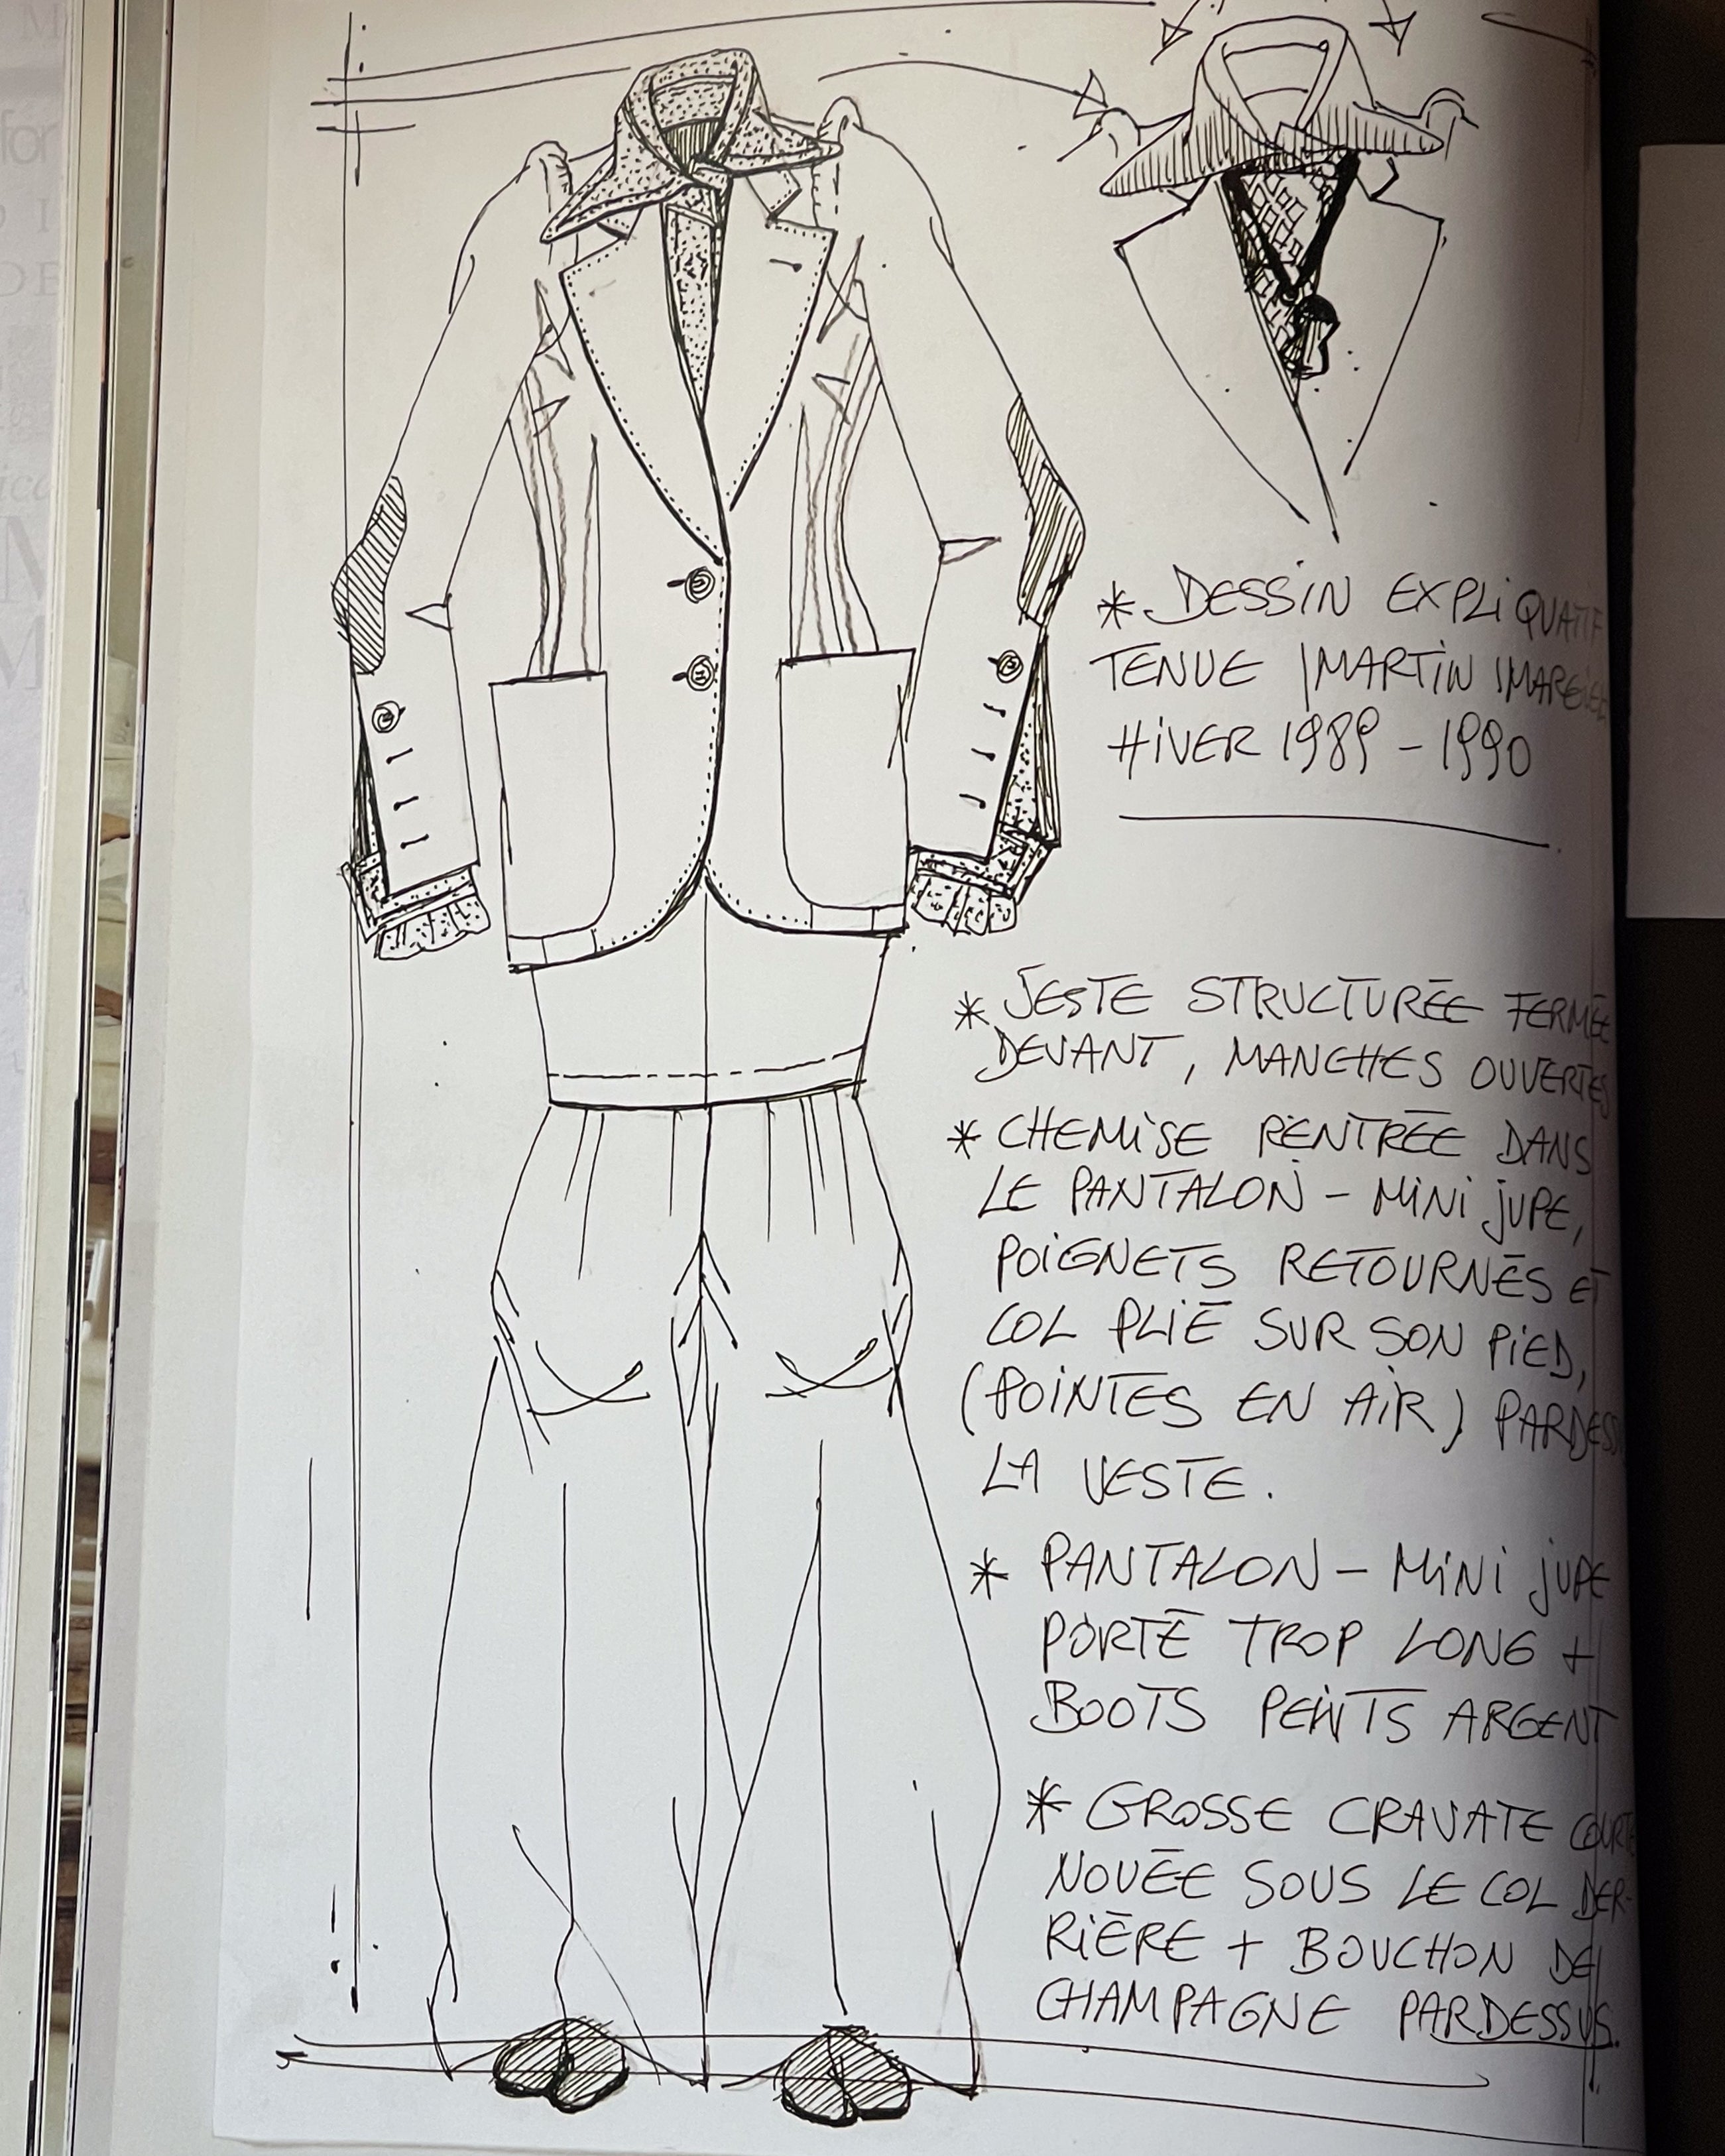 * DESSIN EXPLIQUATIF
TENUE MARTIN MARGIELA
HIVER 1989 - 1990
* JESTE STRUCTURÉE FERMÉE
DEVANT, MANCHES OUVERTES
* CHEMISE RENTRÉE DANS
LE PANTALON - MINI JUPE,
POIGNETS RETOURNÉS ET
COL PLIÉ SUR SON PIED,
(POINTES EN AIR) PARDESSUS
LA VESTE.
* PANTALON - MINI JUPE
PORTÉ TROP LONG +
BOOTS PEINTS ARGENT
* GROSSE CRAVATE COURTE
NOUÉE SOUS LE COL DER-
RIÈRE + BOUCHON DE
CHAMPAGNE PARDESSUS.